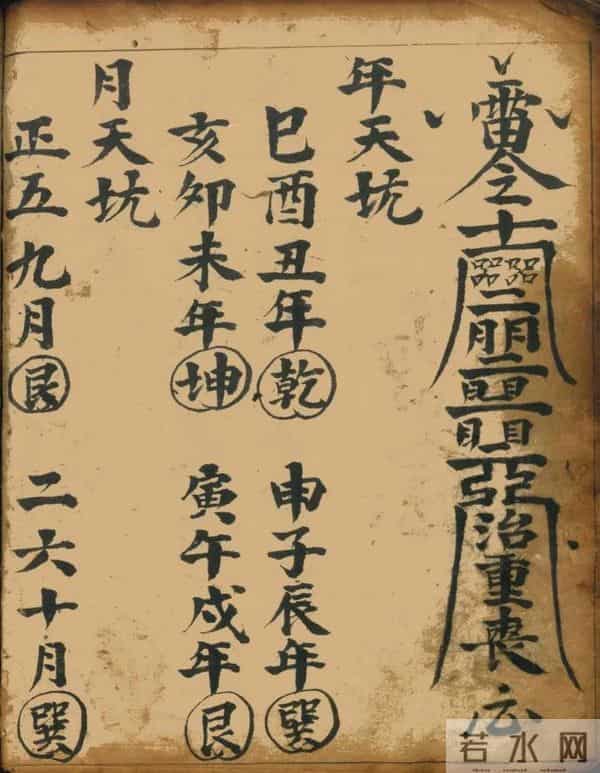 雷令
治重喪
年天坑
巳酉丑年乾 申子辰年巽
亥夘未年坤 寅午戌年艮
月天坑
正五九月艮 二六十月巽
若水网